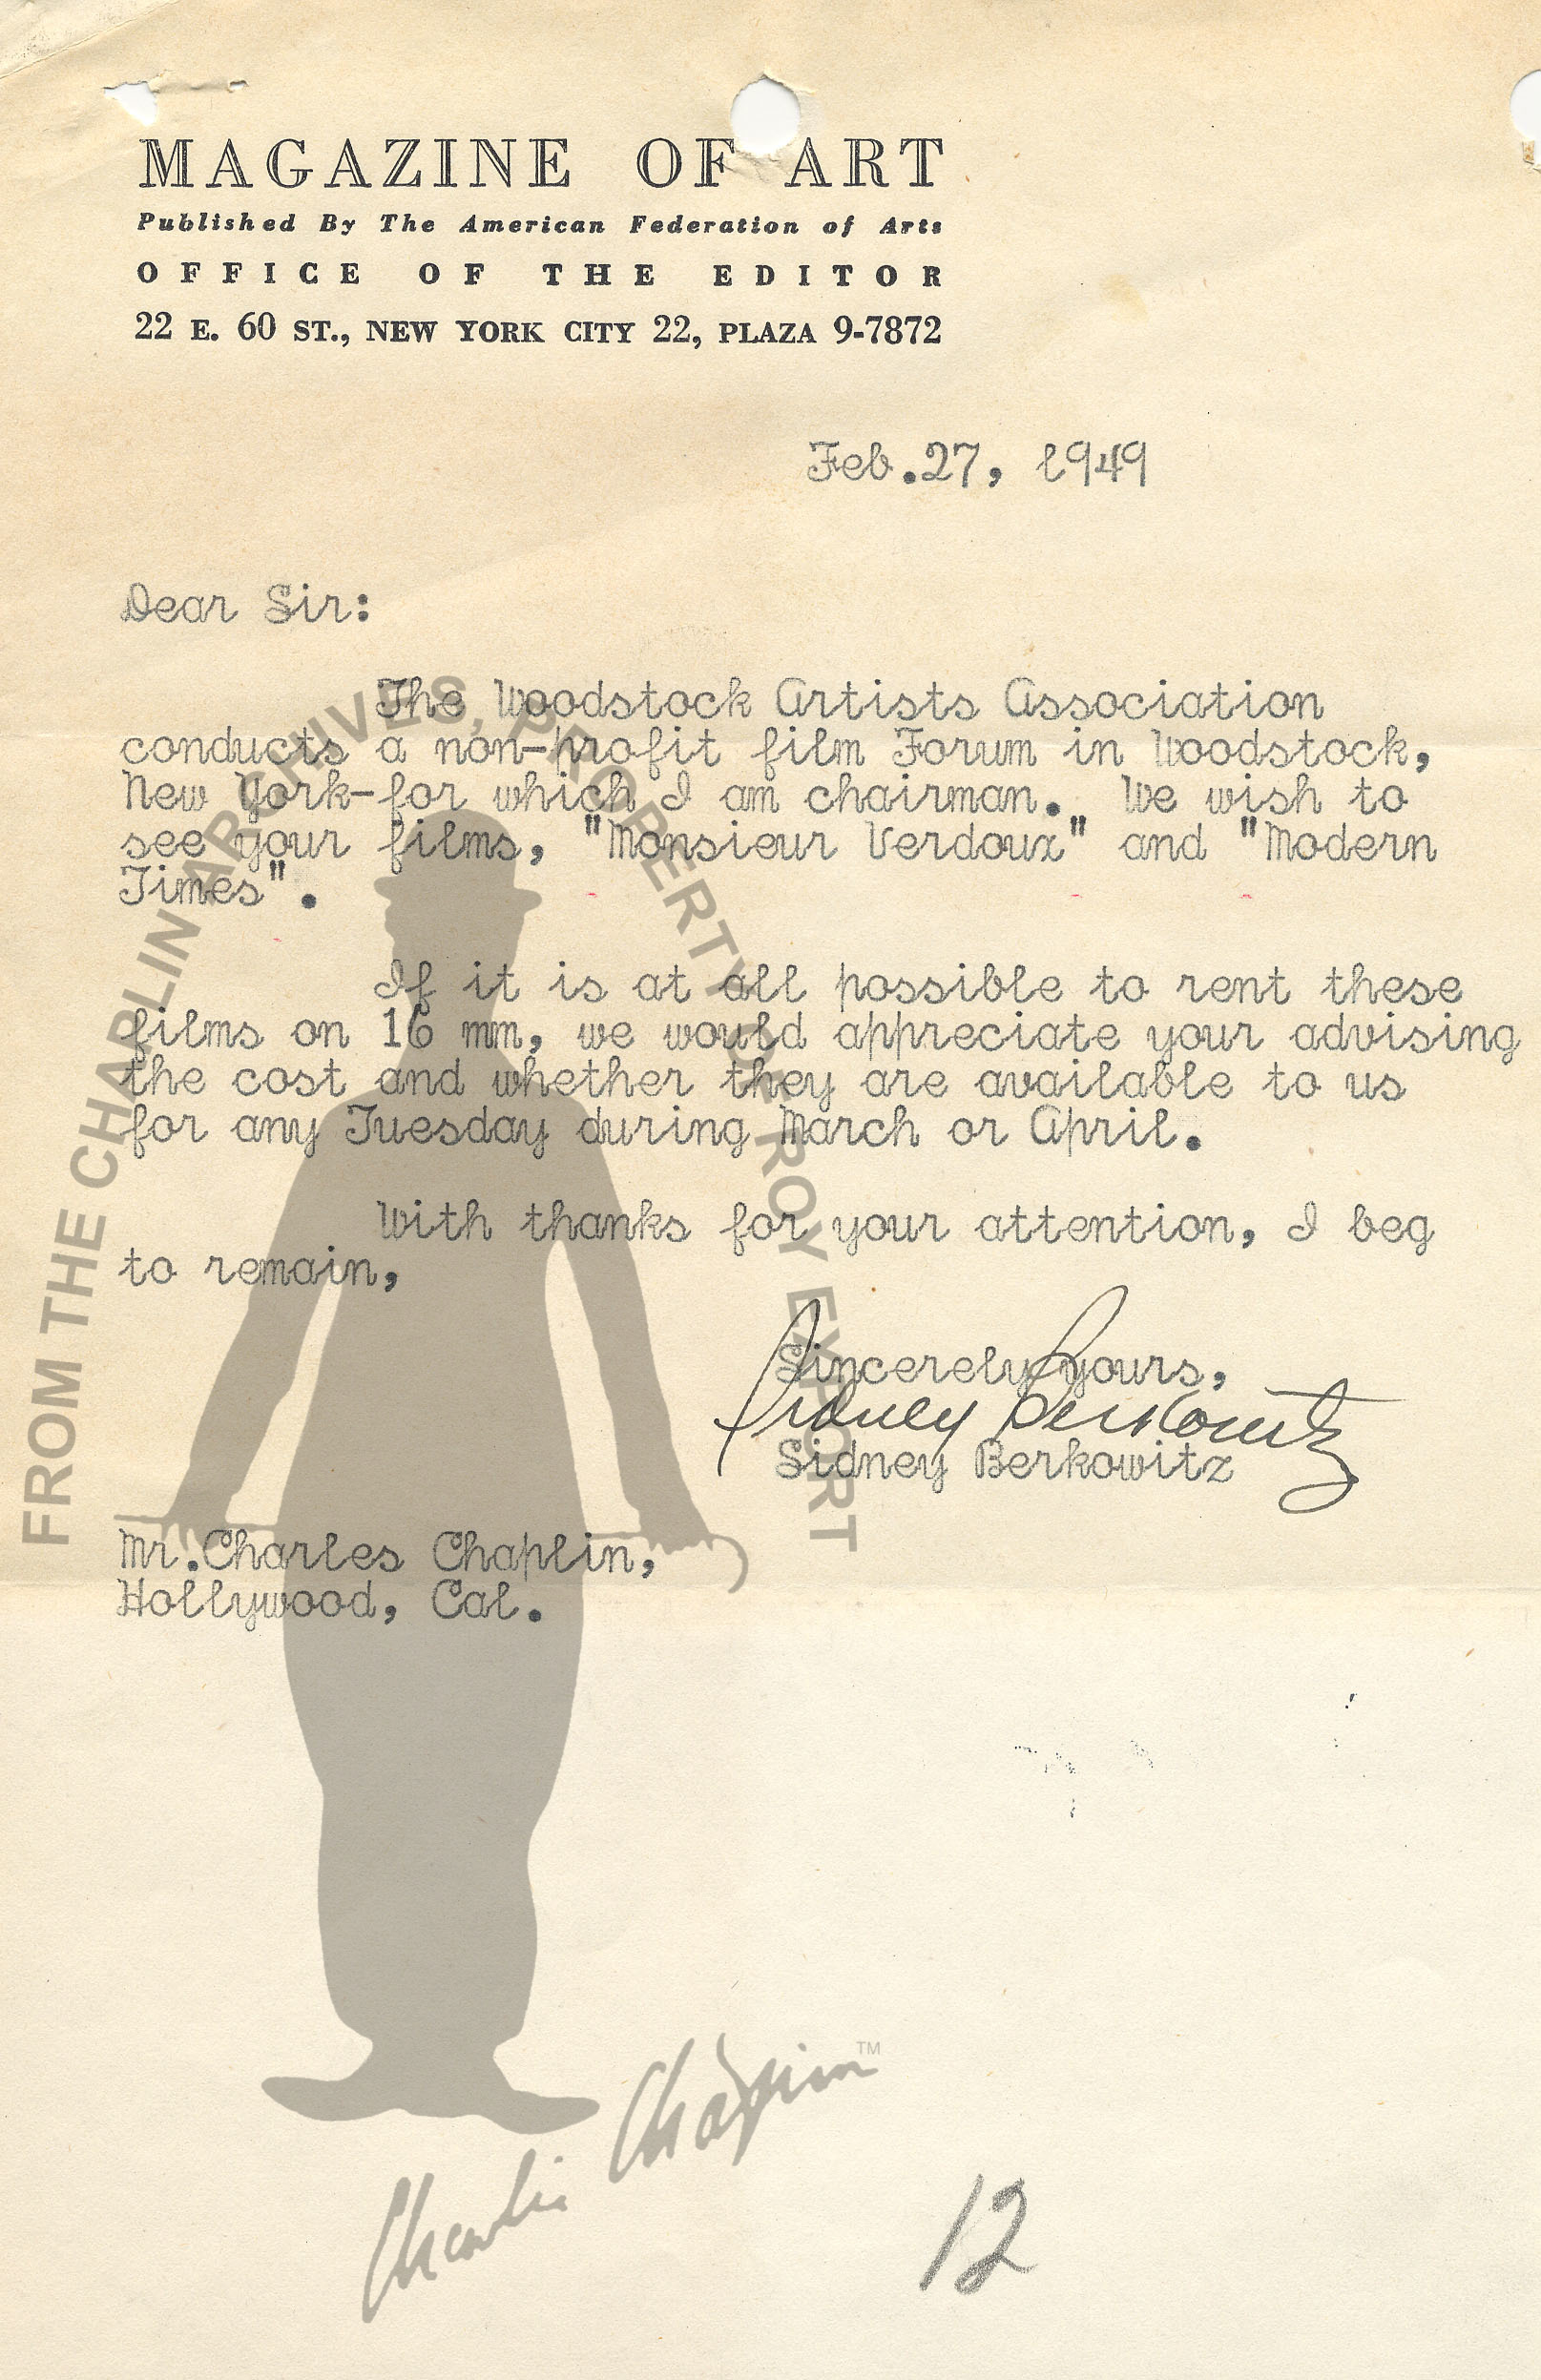 MAGAZINE OF ART
Published By The American Federation of Arts
OFFICE OF THE EDITOR
22 E. 60 ST., NEW YORK CITY 22, PLAZA 9-7872
Feb.27, 1949
Dear Sir:
The Woodstock Artists Association
conducts a non-profit film Forum in Woodstock,
New York-for which I am chairman. We wish to
see your films, "Monsieur Verdoux" and "Modern
Times".
If it is at all possible to rent these
films on 16 mm, we would appreciate your advising
the cost and whether they are available to us
for any Tuesday during March or April.
With thanks for your attention, I beg
to remain,
Sincerely yours,
Sidney Berkowitz
Sidney Berkowitz
Mr.Charles Chaplin,
Hollywood, Cal.
FROM THE CHAPLIN ARCHIVES, PROPERTY OF ROY EXPORT
Charlie Chaplin™
12